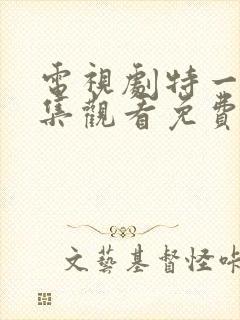 電視劇特一
集觀看免費
文藝基督怪咔